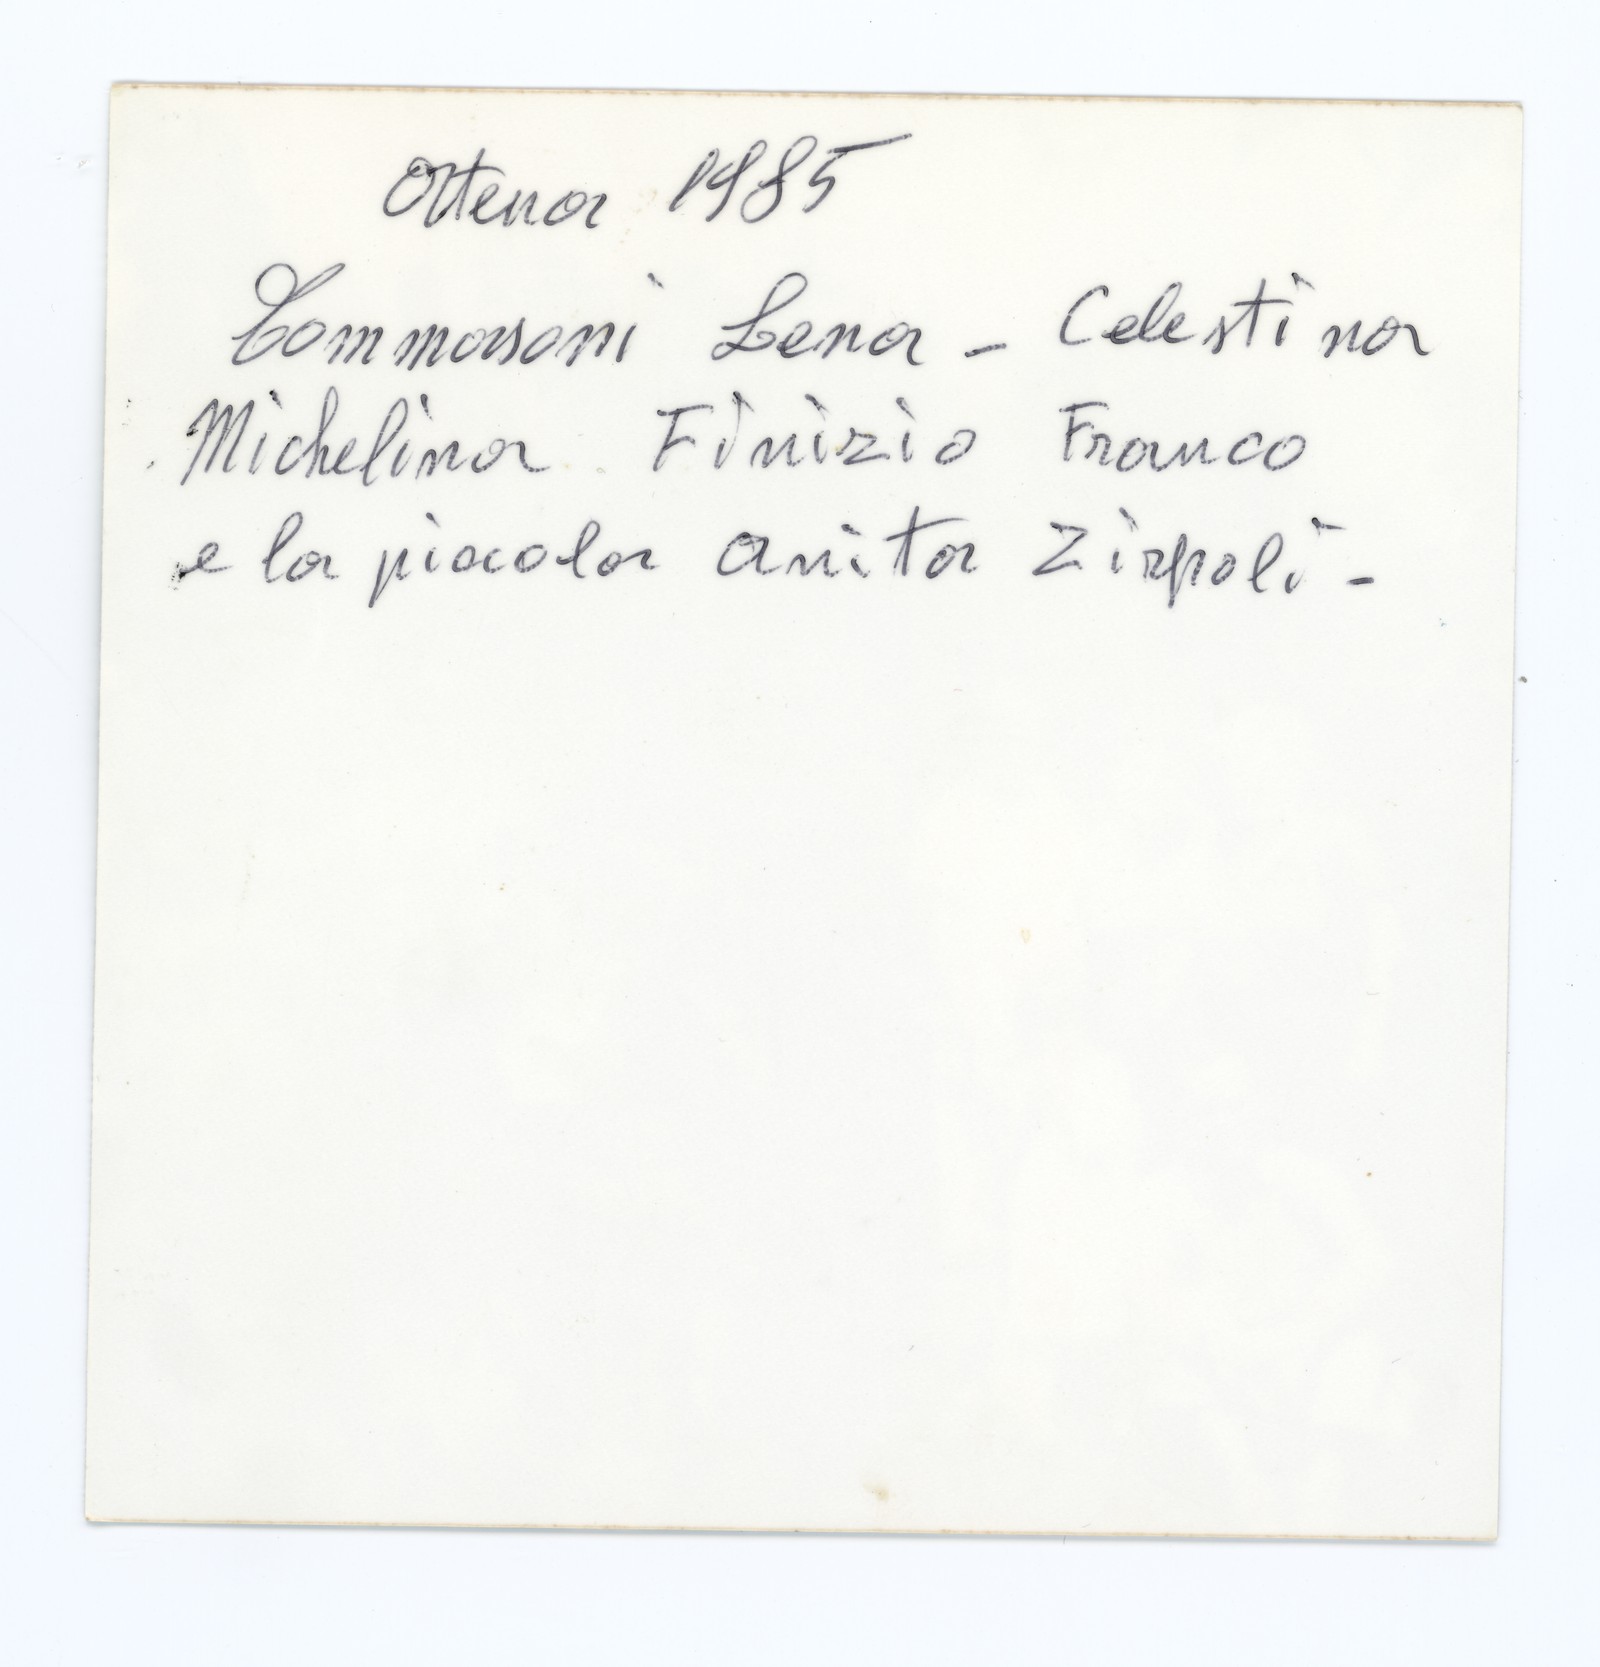 Ottena 1985
Tommasoni Lena - Celestina
Michelina Finizio Franco
e la piccola Anita Zirpoli -